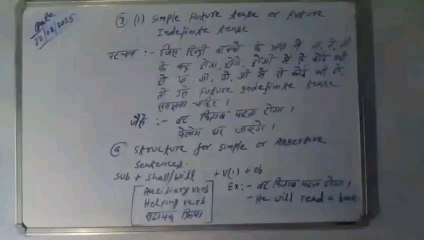 Date
23/08/2025
③ (1) Simple Future tense or Future
Indefinite tense
पहचान :- जिस हिन्दी वाक्यों के अन्त में गा, गे, गी
के बाद होगा, होंगे होगी में से कोई भी
हो या गा, गे, गी में से कोई भी हो,
तो उसे Future Indefinite tense
समझना चाहिए।
जैसे:- वह किताब पढ़ता होगा।
वेलोग घर जाएंगे।
ⓐ Structure for Simple or Assertive
Sentences.
Sub + Shall/will + V(1) + Ob
Auxiliary verb
Helping verb
सहायक क्रिया
Ex:- वह किताब पढ़ता होगा।
- He will read a book.